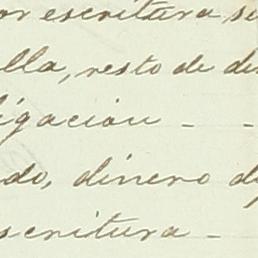 or escritura se
lla, resto de di
igación - -
do, dinero d
scritura -